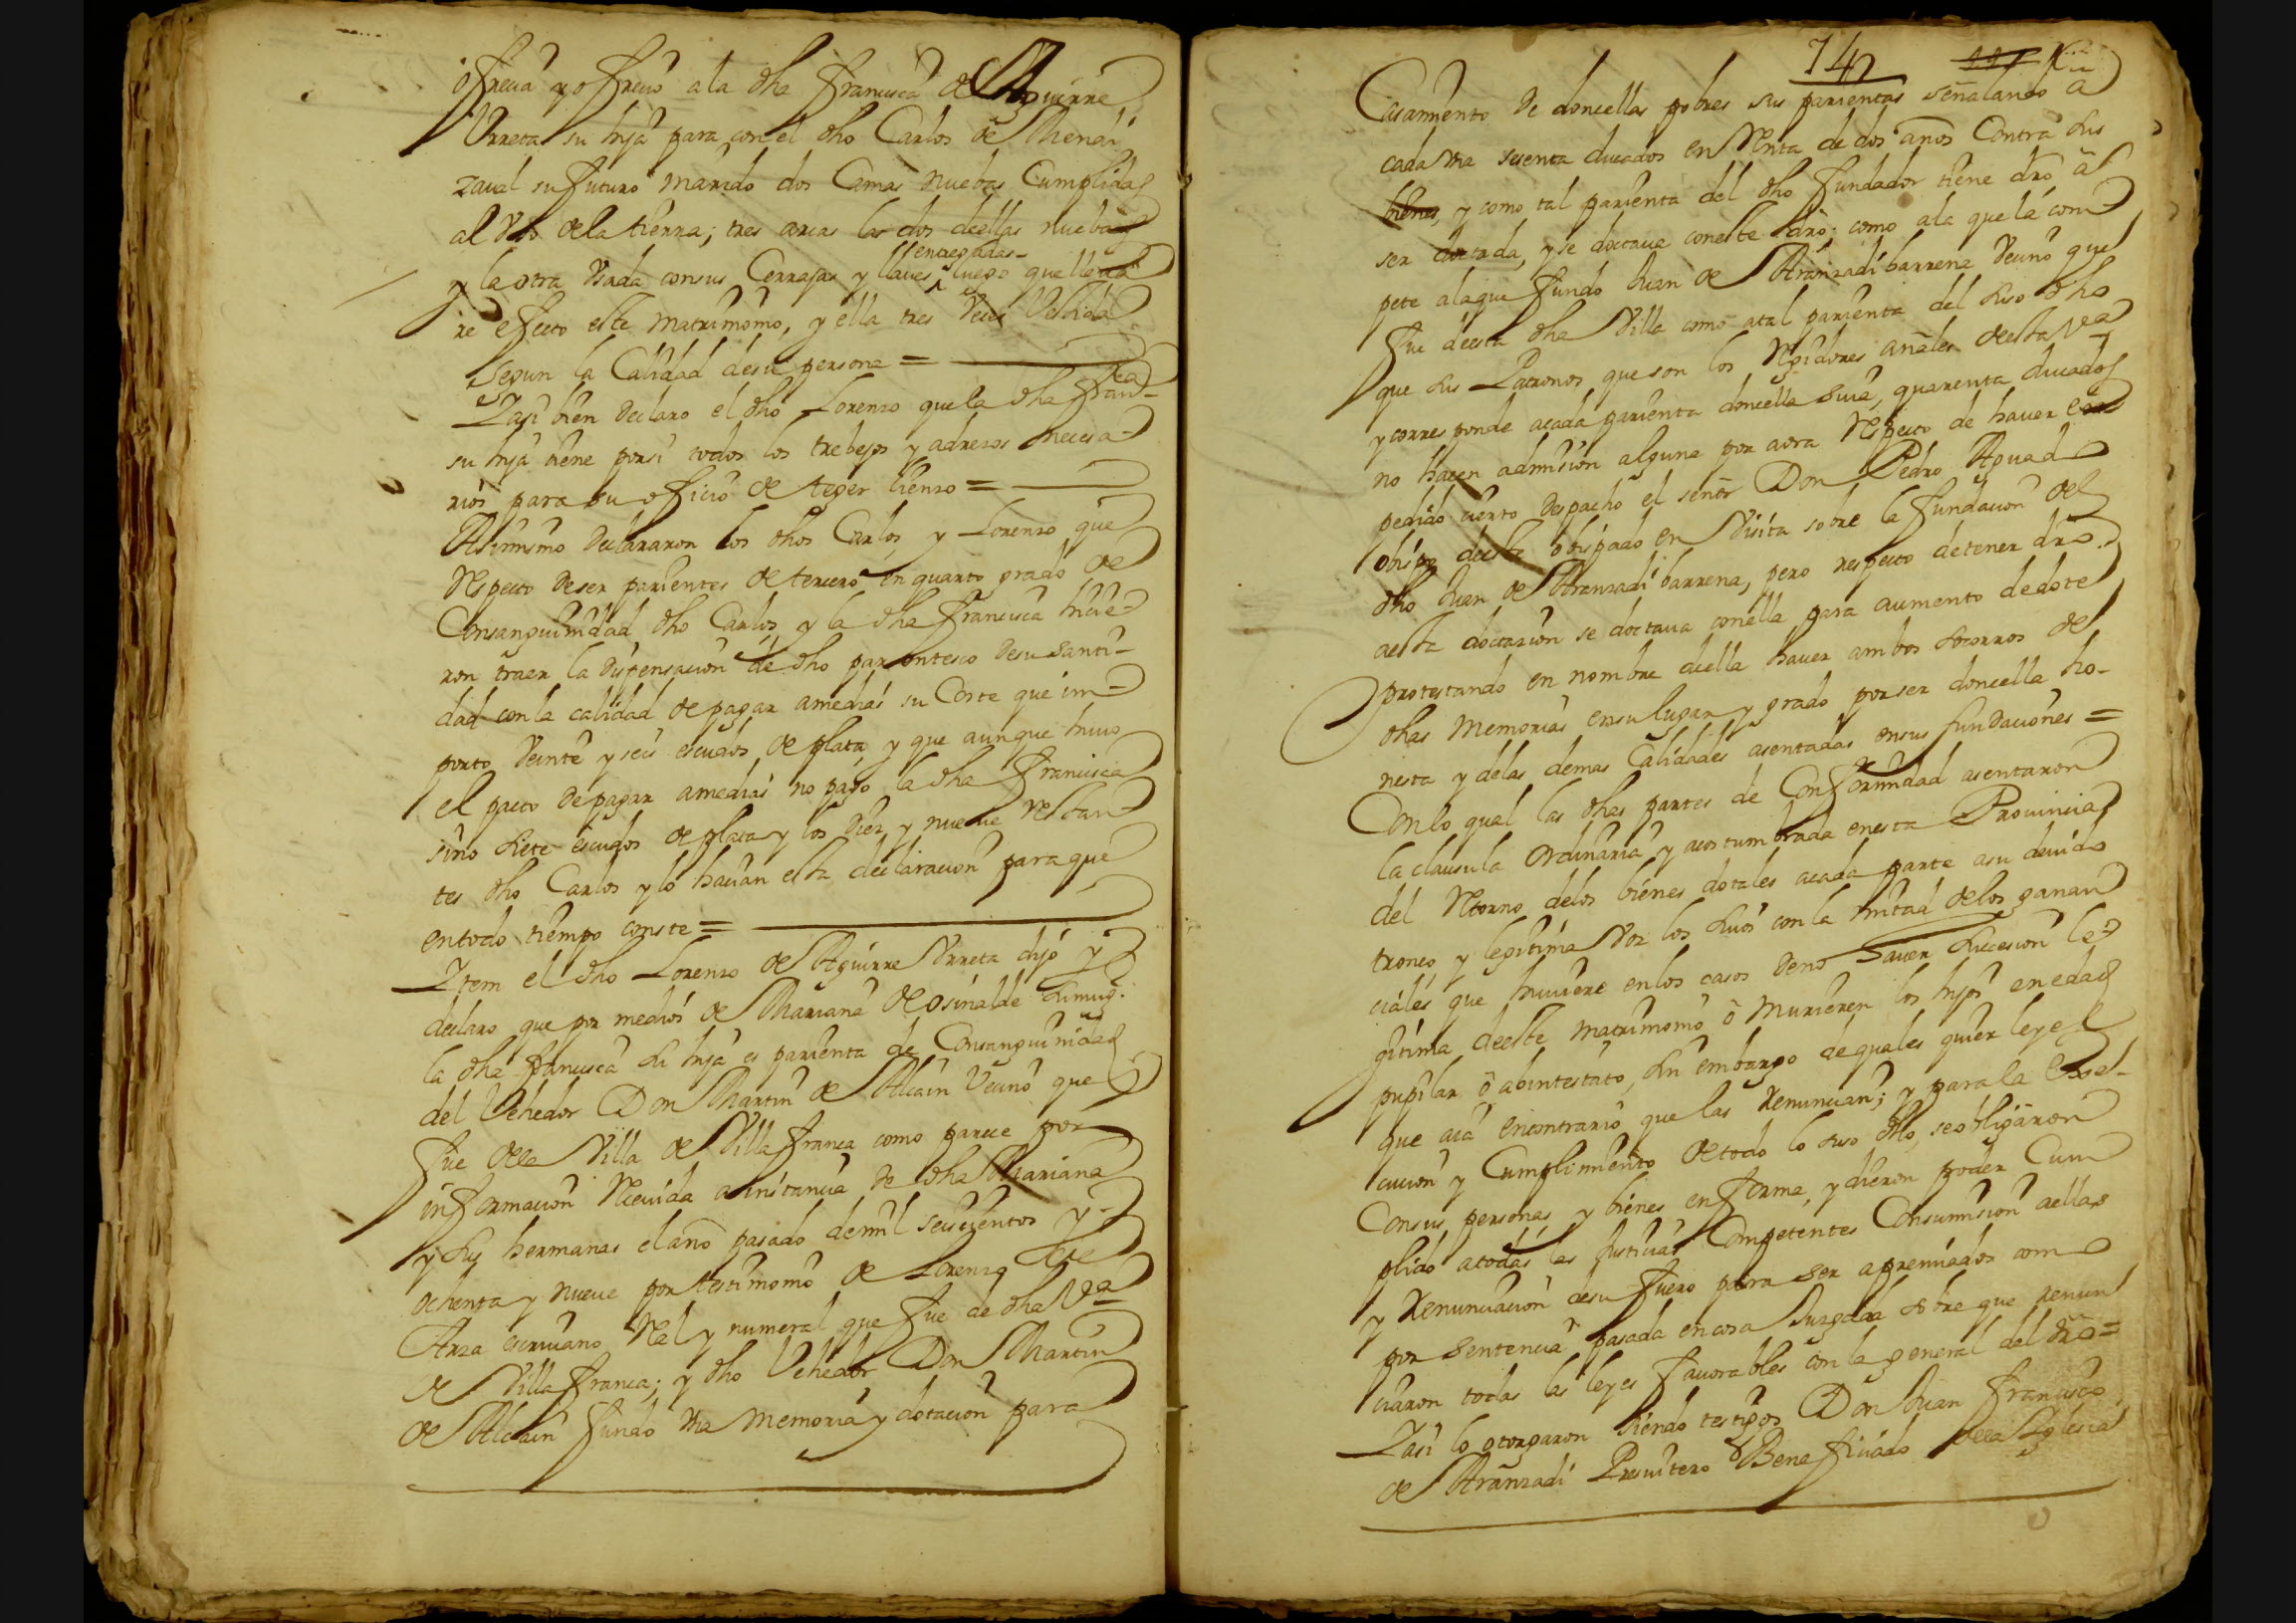 ofrecia y ofrecio a la dha Francisca de Aguirre
Vrreta su hija para con el dho Carlos de Mendi
zaual su futuro marido dos Camas nuebas Cumplidas
al vso de la tierra; tres arcas las dos deellas nuebas
entregadas
y la otra vsada con sus Cerrajas y llaues luego que lleua
re efecto este matrimonio, y ella tres veces Vestida
Segun la Calidad desu persona =
Yasi bien declaro el dho Lorenzo que la dha Fran.ca
su hija tiene porsi todos los trebejos y adrezos necesa
rios para su oficio de teger lienzo =
Asimismo declararon los dhos Carlos y Lorenzo que
respecto deser parientes de tercero en quarto grado de
Consanguinidad dho Carlos y la dha Francisca hicie
ron traer la dispensacion de dho parentesco desu santi
dad con la calidad de pagar amedias su Coste que im
porto veinte y seis escudos de plata, y que aunque huuo
el pacto de pagar amedias no pago la dha Francisca
sino siete escudos de plata y los diez y nueue restan
tes dho Carlos y lo hacian esta declaracion para que
entodo tiempo conste =
Ytem el dho Lorenzo de Aguirre Vrreta dijo y
declaro que por medios de Mariana de osinalde su mug.r
la dha francisca su hija es parienta de Consanguinidad
del Vehedor Don Martin de Alcain Vecino que
fue de la Villa de Villafranca como parece por
informacion Recevida a instancia de dha Mariana
y sus hermanas el año pasado de mil seiscientos y
ochenta y nueue por testimonio de Lorenzo de
Arza escriuano Real y numeral que fue de dha Va
de Villafranca; y dho Vehedor Don Martin
de Alcain fundo vna memoria y dotacion para
142
Casamiento de doncellas pobres sus parientas señalando a
cada vna sesenta ducados en Renta de dos años Contra sus
bienes, y como tal parienta del dho fundador tiene dro a
ser dotada, y se doctaua coneste dro; como ala que la com
pete ala que fundo Juan de Aranzadi barrena Vecino que
fue deesta dha Villa como atal parienta del suso dho
que sus Patronos que son los Regidores añales deesta Va
y corresponde acada parienta doncella suia, quarenta ducados
no hacen admision alguna por aora Respecto de hauer
pedido cierto despacho el señor Don Pedro Aguado
obispo deeste obispado en Visita sobre la fundacion de
dho Juan de Aranzadi barrena, pero respecto detener dro
aesta doctacion se doctaua conella para aumento dedote
protestando en nombre deella hauer ambos socorros de
dhas memorias ensu lugar y grado por ser doncella ho
nesta y delas demas Calidades asentadas ensus fundaciones =
Con lo qual las dhas partes de Conformidad asentaron
la clausula Ordinaria y acostumbrada enesta Prouincia
del Retorno delos bienes dotales acada parte asu deuido
tronco y legitima voz los suios con la mitad delos ganan
ciales que huuiere enlos casos deno hauer succesion le
gitima deeste matrimonio o Murieren los hijos en edad
pupilar o abintestato, sin embargo dequales quier leyes
que aia encontrario que las Renuncian; y para la exse
cucion y Cumplimiento de todo lo suso dho, se obligaron
Consus personas y bienes enforma, y dieron poder Cum
plido atodas las Justicias Competentes Consumision aellas
y Renunciacion desu fuero para ser apremiados como
por sentencia pasada encosa Juzgada sobre que renun
ciaron todas las leyes fauorables con la general del dro =
Yasi lo otorgaron siendo testigos Don Juan Francisco
de Aranzadi Presuitero Beneficiado dela Iglesia